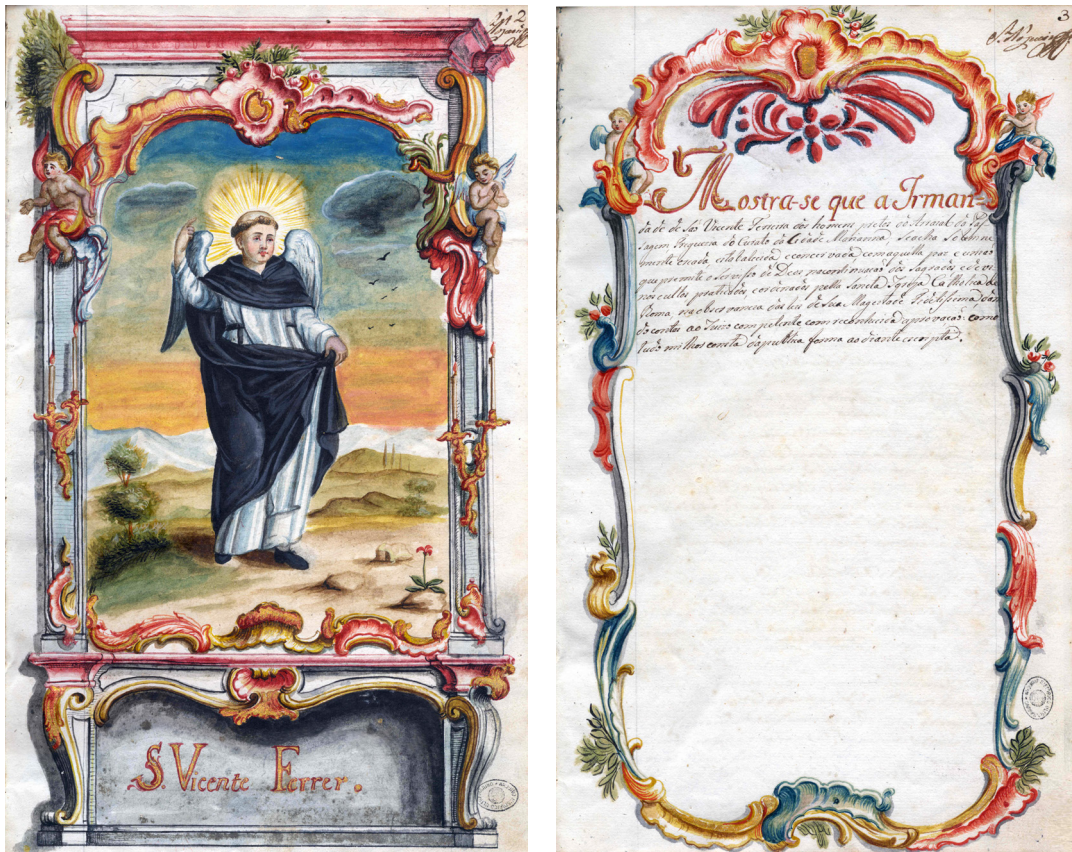 S. Vicente Ferrer.
3
Mostra-se que a Irman=
da de de São Vicente Ferreira dos homens pretos do Arraial da Pas
sagem Freguezia do Curato da Cidade Marianna, se acha
mente erecta, estabalecida, e conservada com aquella paz e uniaõ
que premite o Serviço de Deos na continuaçaõ dos Sagrados, e de vo
nos cultos praticados, e ordenados pella Sancta Igreja Catholica de
Roma, na observancia das Leis de Sua Magestade Fidelissima, dan
do contas ao Juizo competente com reconhecida aprovaçaõ: como
tudo milhor consta da pultra forma ao diante escripta.